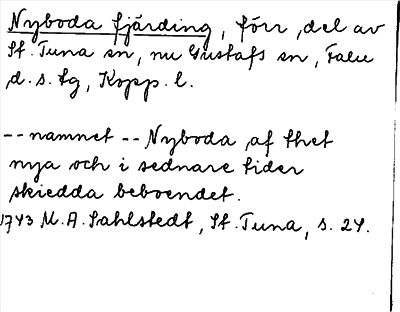 Nyboda fjärding, förr, del av
St. Tuna sn, nu Gustafs sn, Falu
d. s. tg, Kopp. l.
-- namnet -- Nyboda, af thet
nya och i sednare tider
skiedda beboendet.
1743 M. A. Sahlstedt, St. Tuna, s. 24.